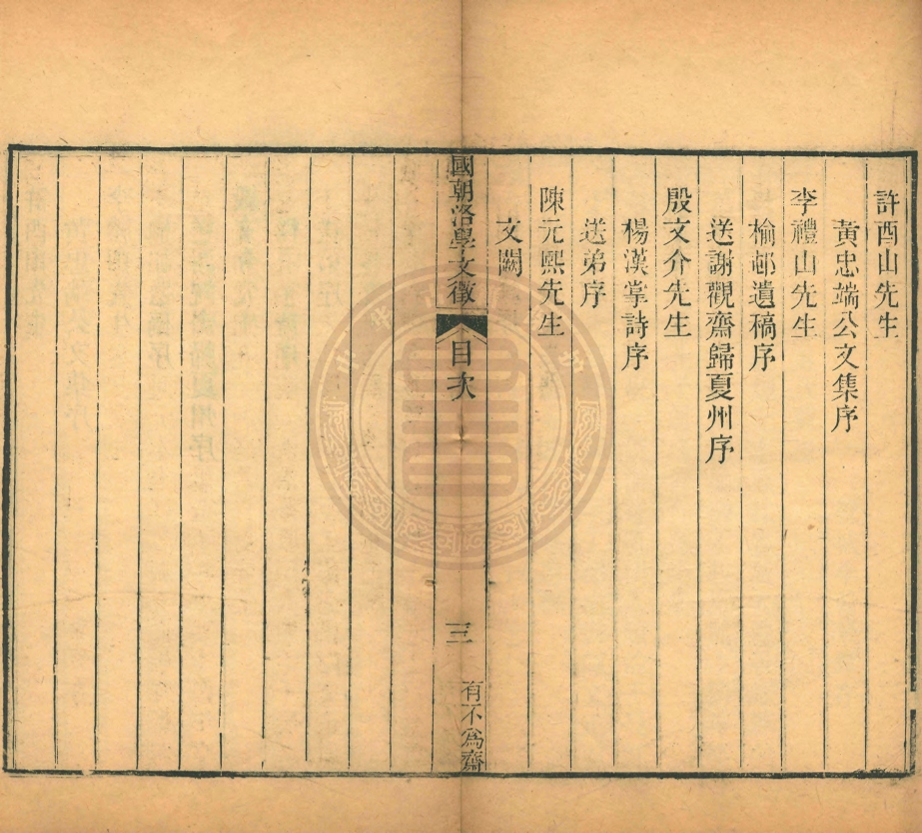 許酉山先生
黃忠端公文集序
李禮山先生
榆邨遺稿序
送謝觀齋歸夏州序
殷文介先生
楊漢掌詩序
送弟序
陳元熙先生
文闕
國朝洛學文徵
目次
三
有不為齋